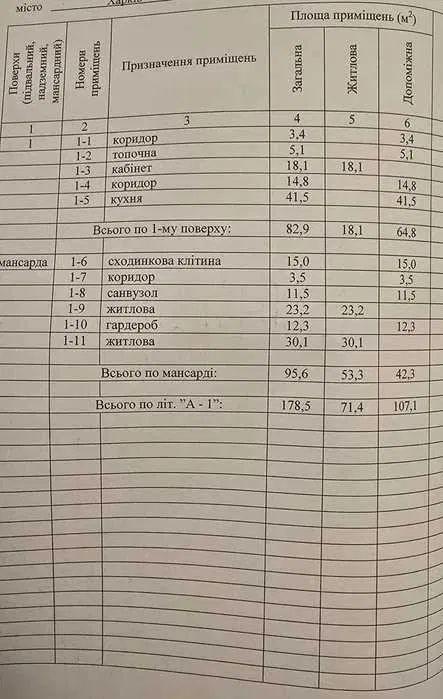 місто Харків
Площа приміщень (м²)
Поверхи (підвальний, надземний, мансардний)
Номери приміщень
Призначення приміщень
Загальна
Житлова
Допоміжна
1 2 3 4 5 6
1 1-1 коридор 3,4 3,4
1-2 топочна 5,1 5,1
1-3 кабінет 18,1 18,1
1-4 коридор 14,8 14,8
1-5 кухня 41,5 41,5
Всього по 1-му поверху: 82,9 18,1 64,8
мансарда 1-6 сходинкова клітина 15,0 15,0
1-7 коридор 3,5 3,5
1-8 санвузол 11,5 11,5
1-9 житлова 23,2 23,2
1-10 гардероб 12,3 12,3
1-11 житлова 30,1 30,1
Всього по мансарді: 95,6 53,3 42,3
Всього по літ. ”А - 1”: 178,5 71,4 107,1